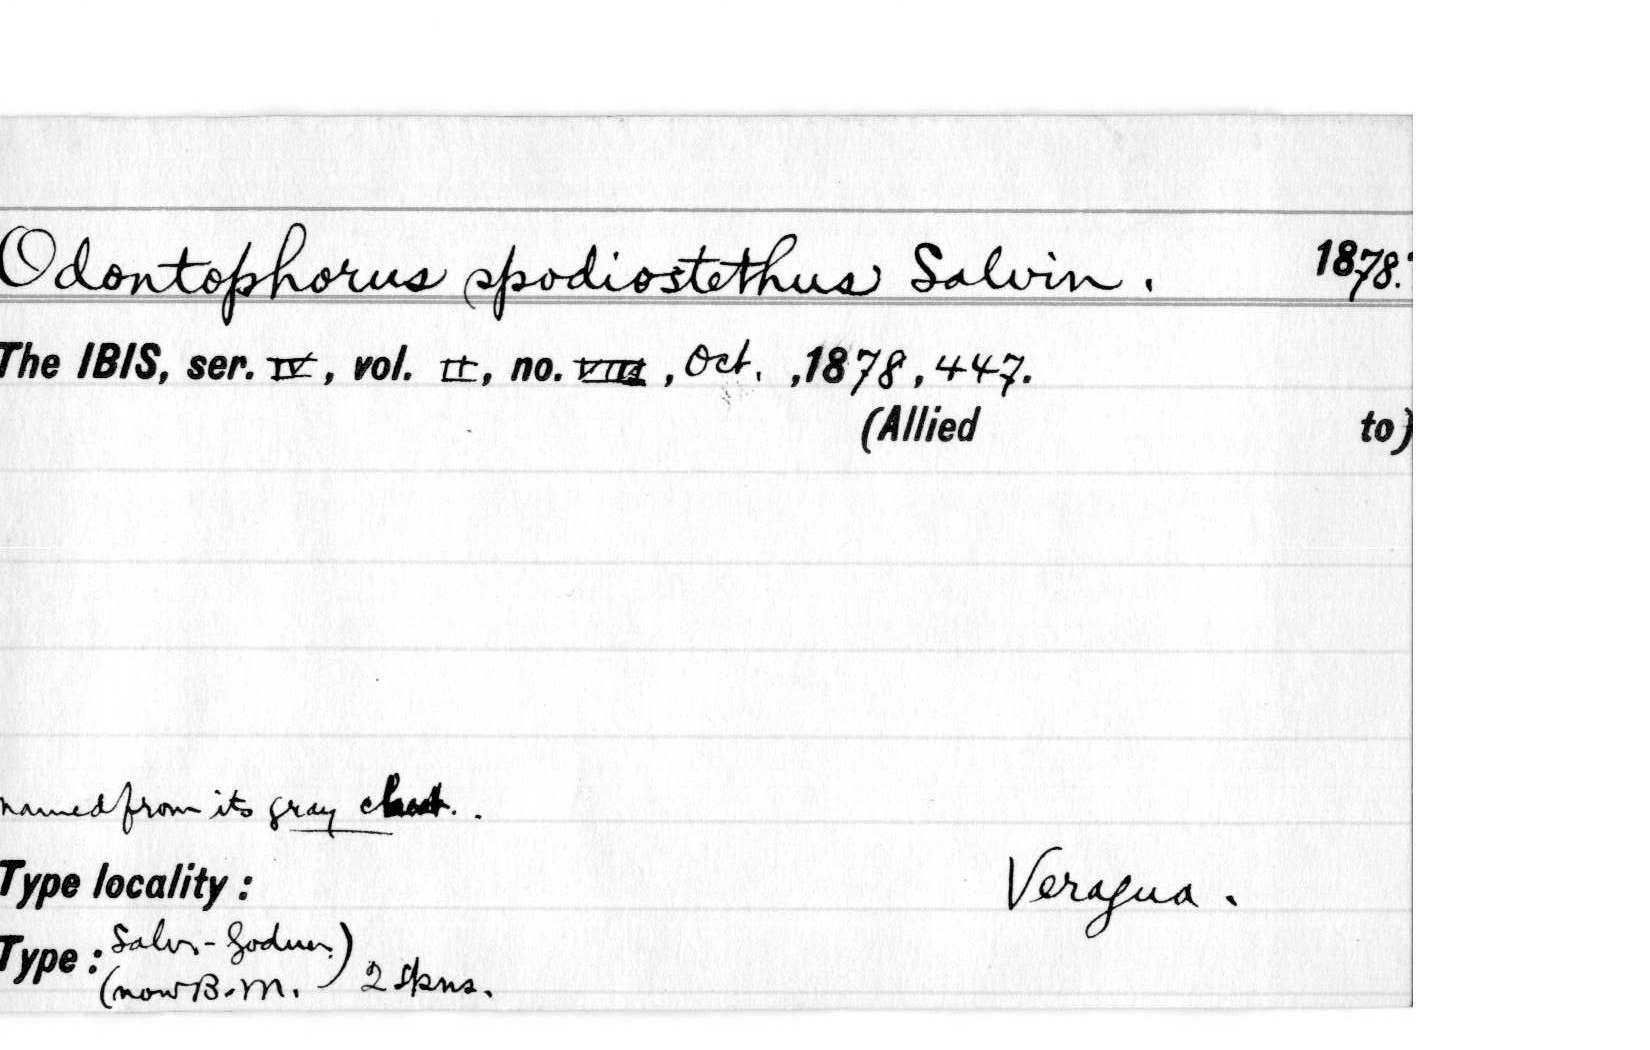 Odontophorus spodiostethus Salvin. 1878.
The IBIS, ser. IV, vol. II, no. VIII, Oct., 1878, 447.
(Allied to)
named from its gray chest.
Type locality: Veragua.
Type: Salv.-Godman)
(now B.M. 2 skns.